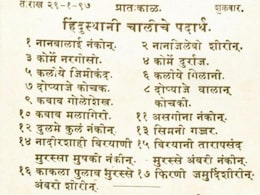 ता.राख २९-१-९७ प्रातःकाळ. शुक्रवार.
हिंदुस्थानी चालीचे पदार्थ.
१ नानबालाई नंकीन. २ नानजिलेबी शीरीन.
३ कोर्मे नरगीसो. ४ कोर्मे दुर्राज.
५ कलीये जिमीकंद. ६ कलीये गिलानी.
७ दोप्याजे कोचक. ८ दोप्याजे वालान
९ कबाब गोलेशेख. कोचकी.
१० कबाब मलागिरी. ११ असगीना नंकीन.
१२ दुलमे कुलं नंकीन. १३ सिमनी गज्जर.
१४ नादीरशाही बिरयाणी १५ बिरयानी तारापसंद
मुरस्सा मुषकी नंकीन. मुरस्से अंबरी नंकीन.
१६ काकला पुलाव मुरस्से १७ फिरणी जमुर्दिशीरीन.
अंबरी शीरीन.